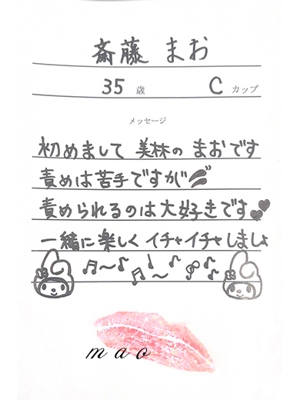 斎藤 まお
35 歳 C カップ
メッセージ
初めまして 美林の まおです
責めは苦手ですが
責められるのは大好きです
一緒に楽しくイチャイチャしましょ
mao